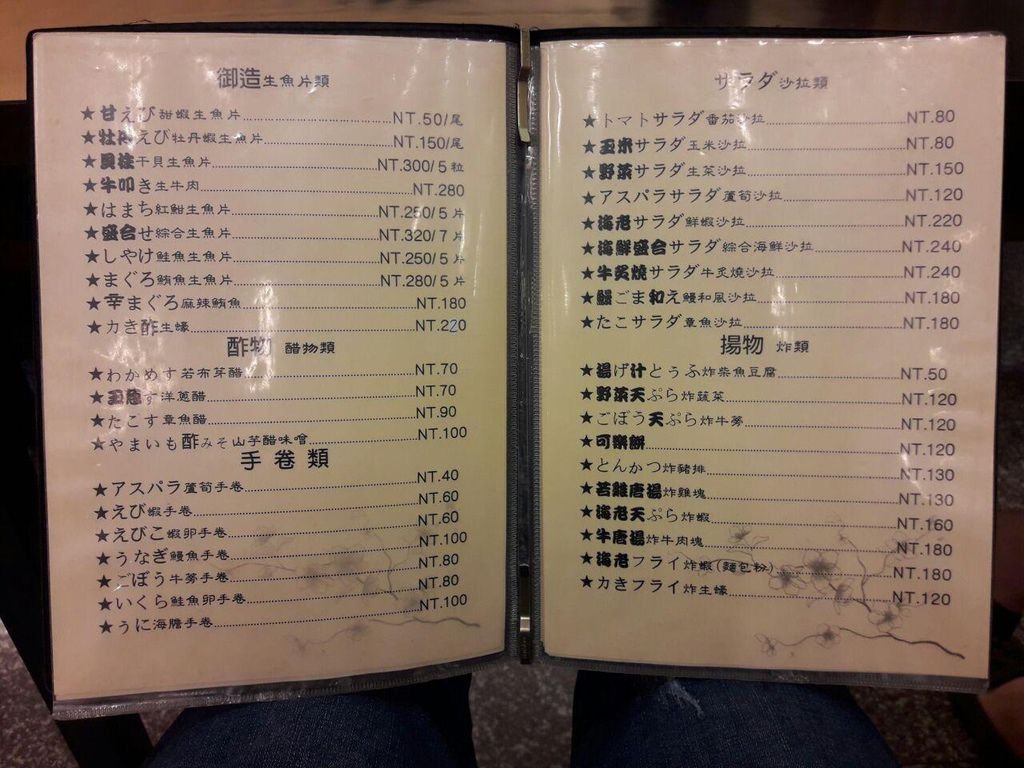 御造生魚片類
★甘えび甜蝦生魚片 NT.50/尾
★牡丹えび牡丹蝦生魚片 NT.150/尾
★貝柱干貝生魚片 NT.300/5粒
★牛叩き生牛肉 NT.280
★はまち紅魽生魚片 NT.250/5片
★盛合せ綜合生魚片 NT.320/7片
★しやけ鮭魚生魚片 NT.250/5片
★まぐろ鮪魚生魚片 NT.280/5片
★辛まぐろ麻辣鮪魚 NT.180
★カき酢生蠔 NT.220
酢物 醋物類
★わかめす若布芽醋 NT.70
★玉葱す洋蔥醋 NT.70
★たこす章魚醋 NT.90
★やまいも酢みそ山芋醋味噌 NT.100
手卷類
★アスパラ蘆筍手卷 NT.40
★えび蝦手卷 NT.60
★えびこ蝦卵手卷 NT.60
★うなぎ鰻魚手卷 NT.100
★ごぼう牛蒡手卷 NT.80
★いくら鮭魚卵手卷 NT.80
★うに海膽手卷 NT.100
サラダ沙拉類
★トマトサラダ番茄沙拉 NT.80
★玉米サラダ玉米沙拉 NT.80
★野菜サラダ生菜沙拉 NT.150
★アスパラサラダ蘆筍沙拉 NT.120
★海老サラダ鮮蝦沙拉 NT.220
★海鮮盛合サラダ綜合海鮮沙拉 NT.240
★牛炙燒サラダ牛炙燒沙拉 NT.240
★鰻ごま和え鰻和風沙拉 NT.180
★たこサラダ章魚沙拉 NT.180
揚物 炸類
★揚げ汁とうふ炸柴魚豆腐 NT.50
★野菜天ぷら炸蔬菜 NT.120
★ごぼう天ぷら炸牛蒡 NT.120
★可樂餅 NT.120
★とんかつ炸豬排 NT.130
★若雞唐揚炸雞塊 NT.130
★海老天ぷら炸蝦 NT.160
★牛唐揚炸牛肉塊 NT.180
★海老フライ炸蝦(麵包粉) NT.180
★カきフライ炸生蠔 NT.120